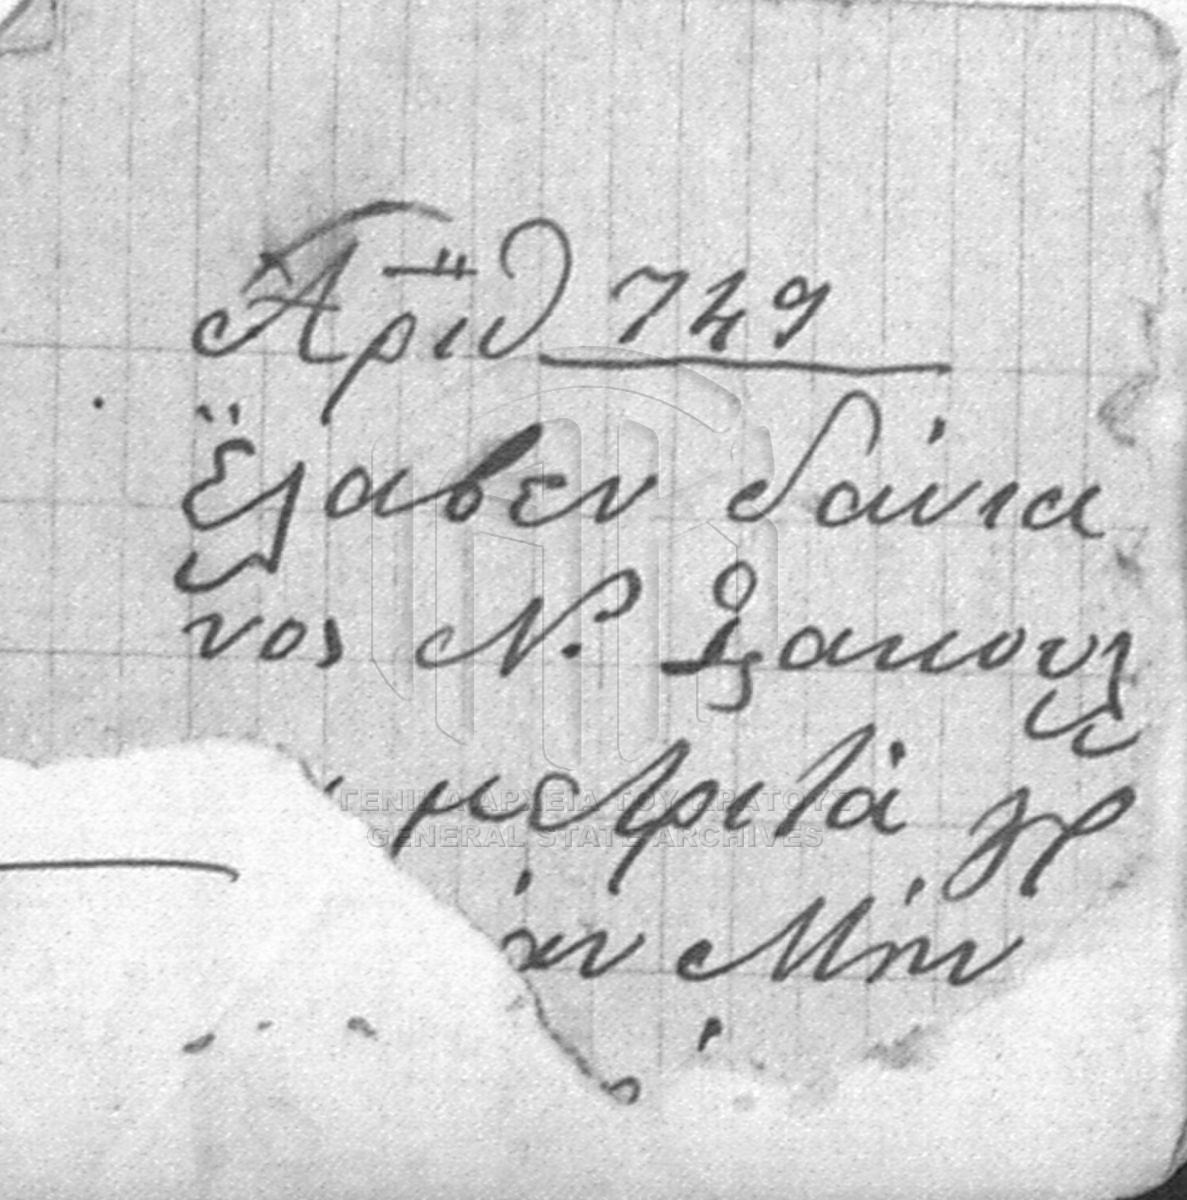 Ἀριθ 749
Ἔλαβεν δάνια
νος Ν. Τζακουλ
μετριτά γρ
Μήν
ΓΕΝΙΚΑ ΑΡΧΕΙΑ ΤΟΥ ΚΡΑΤΟΥΣ
GENERAL STATE ARCHIVES